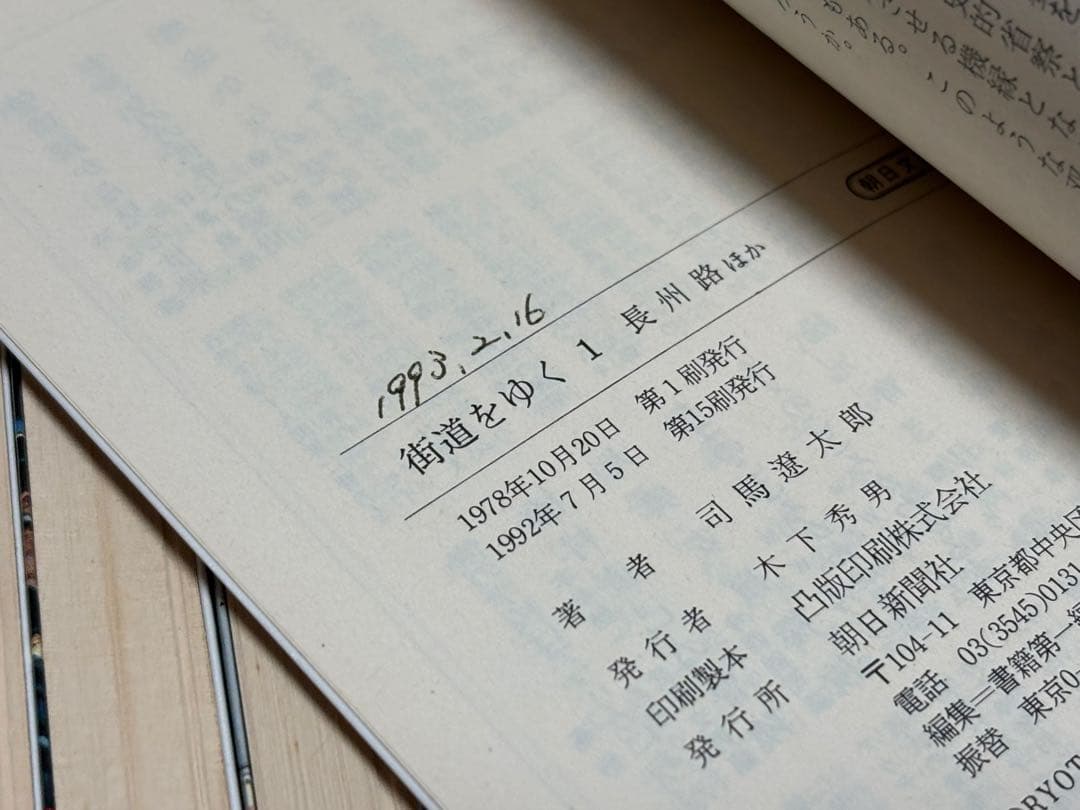 朝日文
1993.2.16
街道をゆく 1 長州路ほか
1978年10月20日 第1刷発行
1992年7月5日 第15刷発行
著者 司馬遼太郎
発行者 木下秀男
印刷製本 凸版印刷株式会社
発行所 朝日新聞社
〒104-11 東京都中央区
電話 03(3545)0131
編集=書籍第一編
振替 東京0-
RYOT
させる機縁とな
もある。このような
うか。